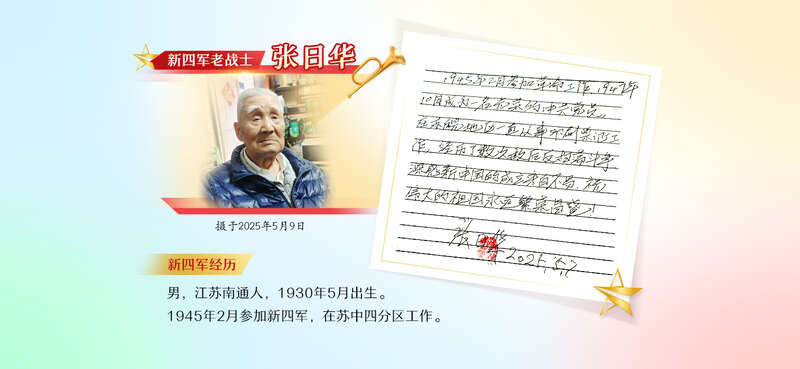 新四军老战士 张日华
摄于2025年5月9日
新四军经历
男，江苏南通人，1930年5月出生。
1945年2月参加新四军，在苏中四分区工作。
1945年2月参加革命工作，1947年
10月成为一名光荣的中共党员。
在苏皖地区一直从事
作，经历了数次敌后反
深感新中国的成立来自不易，祝
伟大的祖国永远繁荣昌盛！
张日华
2025.5.7